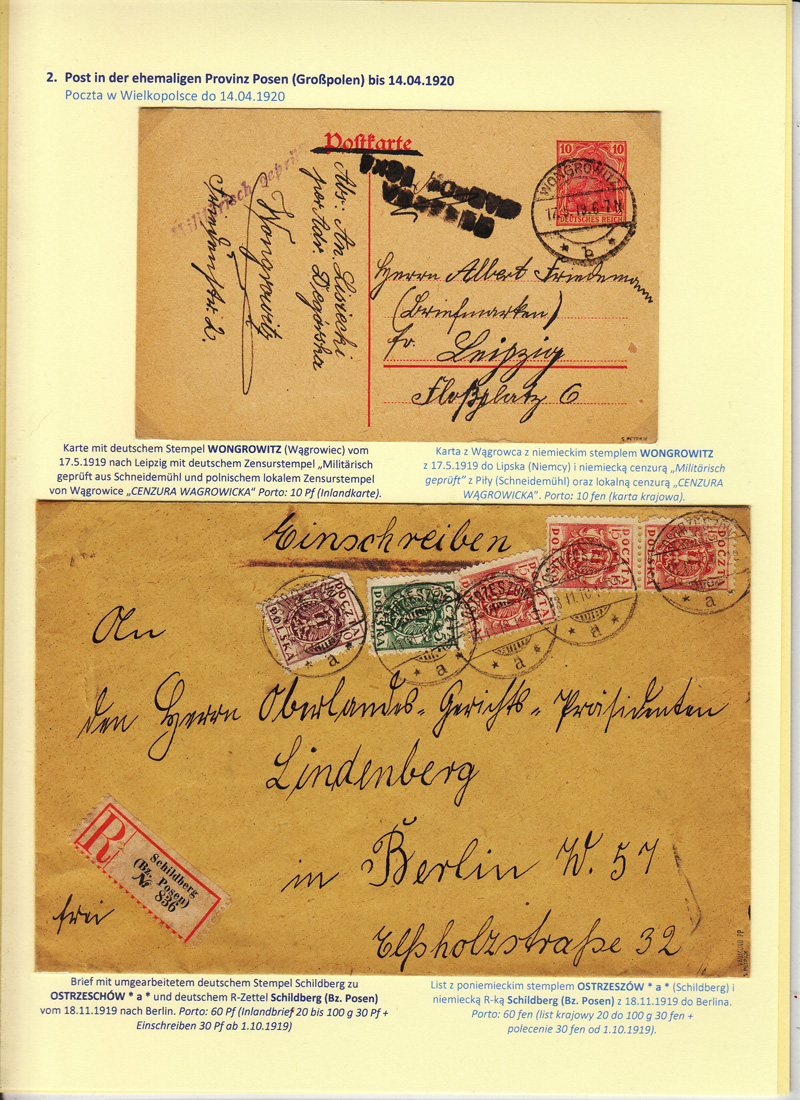 2. Post in der ehemaligen Provinz Posen (Großpolen) bis 14.04.1920
Poczta w Wielkopolsce do 14.04.1920
Postkarte
Militärisch geprüft
10 10
DEUTSCHES REICH
WONGROWITZ
b
Abs: An. Lisiecki
per Adr Degórska
Wongrowitz
Herrn Albert Friedemann
(Briefmarken)
Leipzig
Floßplatz 6
Karte mit deutschem Stempel WONGROWITZ (Wągrowiec) vom
17.5.1919 nach Leipzig mit deutschem Zensurstempel „Militärisch
geprüft aus Schneidemühl und polnischem lokalem Zensurstempel
von Wągrowice „CENZURA WAGROWICKA“ Porto: 10 Pf (Inlandkarte).
Karta z Wągrowca z niemieckim stemplem WONGROWITZ
z 17.5.1919 do Lipska (Niemcy) i niemiecką cenzurą „Militärisch
geprüft” z Piły (Schneidemühl) oraz lokalną cenzurą „CENZURA
WĄGROWICKA”. Porto: 10 fen (karta krajowa).
Einschreiben
POCZTA POLSKA 10
POCZTA POLSKA 5
POCZTA POLSKA 15
POCZTA POLSKA 15
POCZTA POLSKA 15
OSTRZESZÓW
a
An
den Herrn Oberlandes-Gerichts-Präsidenten
Lindenberg
in Berlin W. 57
Elßholzstraße 32
R
Schildberg
(Bz. Posen)
№ 836
frei
Brief mit umgearbeitetem deutschem Stempel Schildberg zu
OSTRZESCHÓW * a * und deutschem R-Zettel Schildberg (Bz. Posen)
vom 18.11.1919 nach Berlin. Porto: 60 Pf (Inlandbrief 20 bis 100 g 30 Pf +
Einschreiben 30 Pf ab 1.10.1919)
List z poniemieckim stemplem OSTRZESZÓW * a * (Schildberg) i
niemiecką R-ką Schildberg (Bz. Posen) z 18.11.1919 do Berlina.
Porto: 60 fen (list krajowy 20 do 100 g 30 fen +
polecenie 30 fen od 1.10.1919).